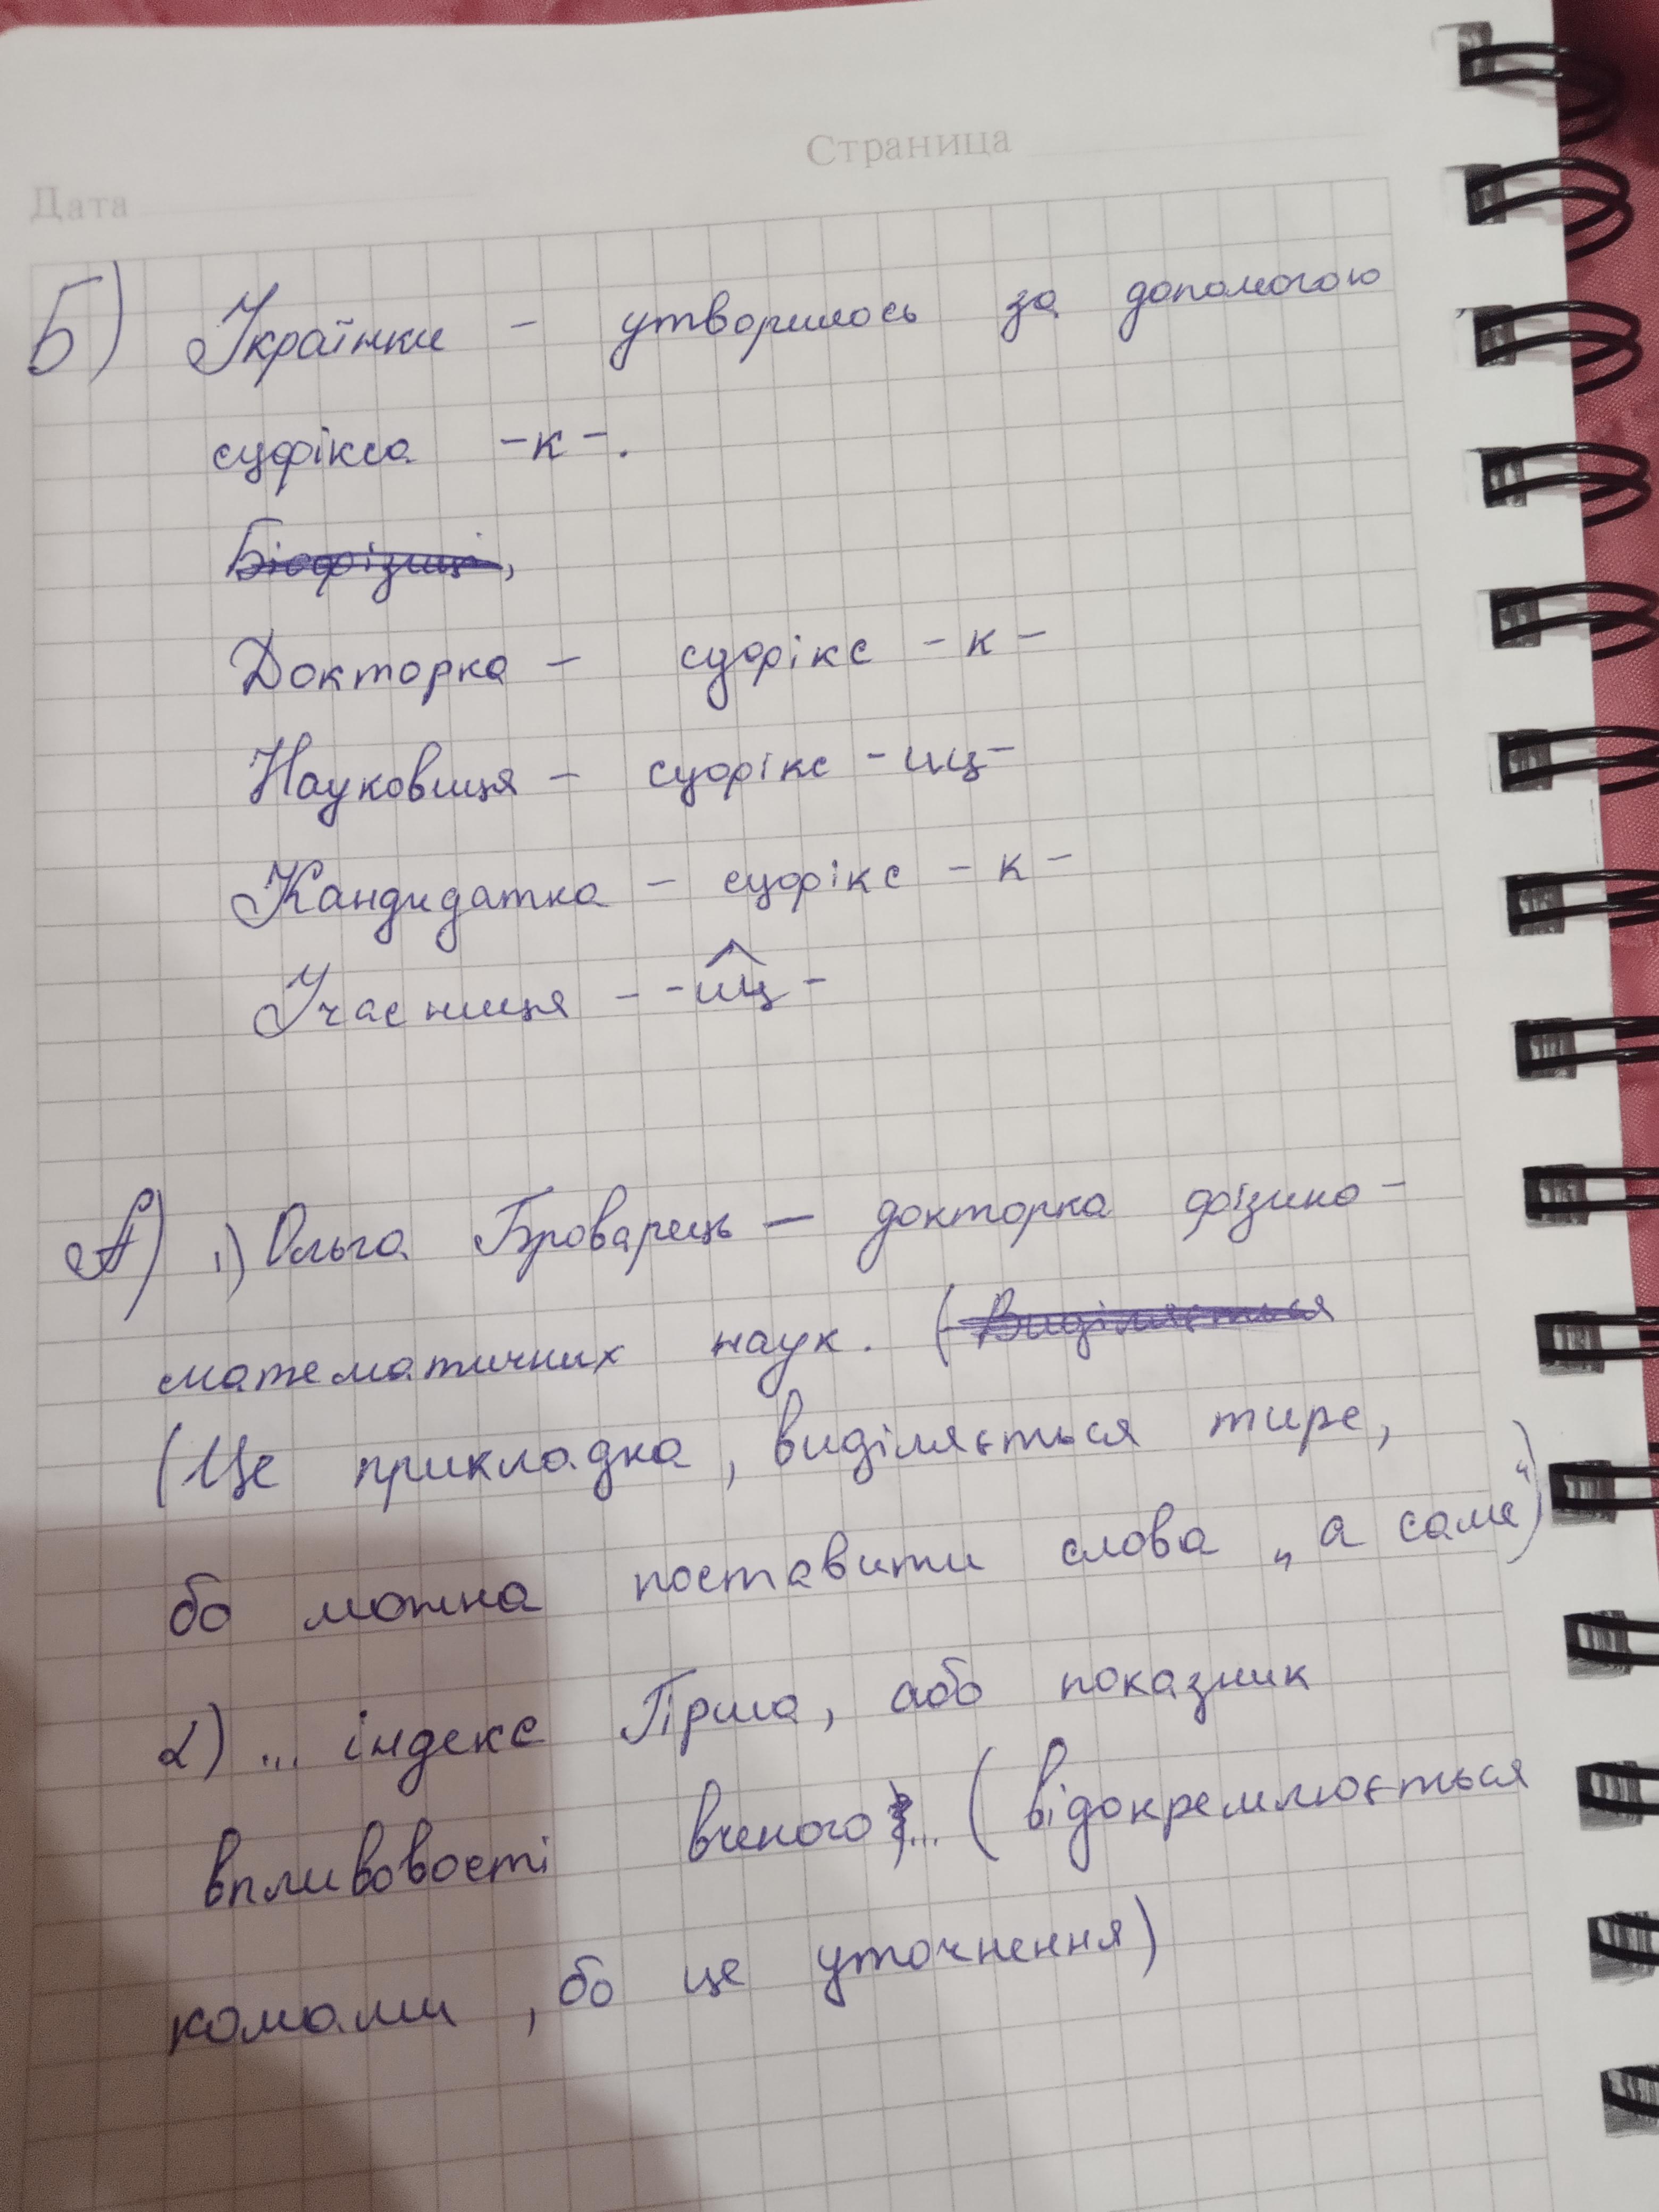 Дата
Страница
Б) Українки - утворилось за допомогою
суфікса -к-.
Біофізиці,
Докторка - суфікс -к-
Науковиця - суфікс -иц-
Кандидатка - суфікс -к-
Учасниця - -иц-
А) 1) Ольга Броварець — докторка фізико-
математичних наук. (Виділяється
(Це прикладка, виділяється тире,
бо можна поставити слова „а саме")
2) ... індекс Гірша, або показник
впливовості вченого... (відокремлюється
комами, бо це уточнення)